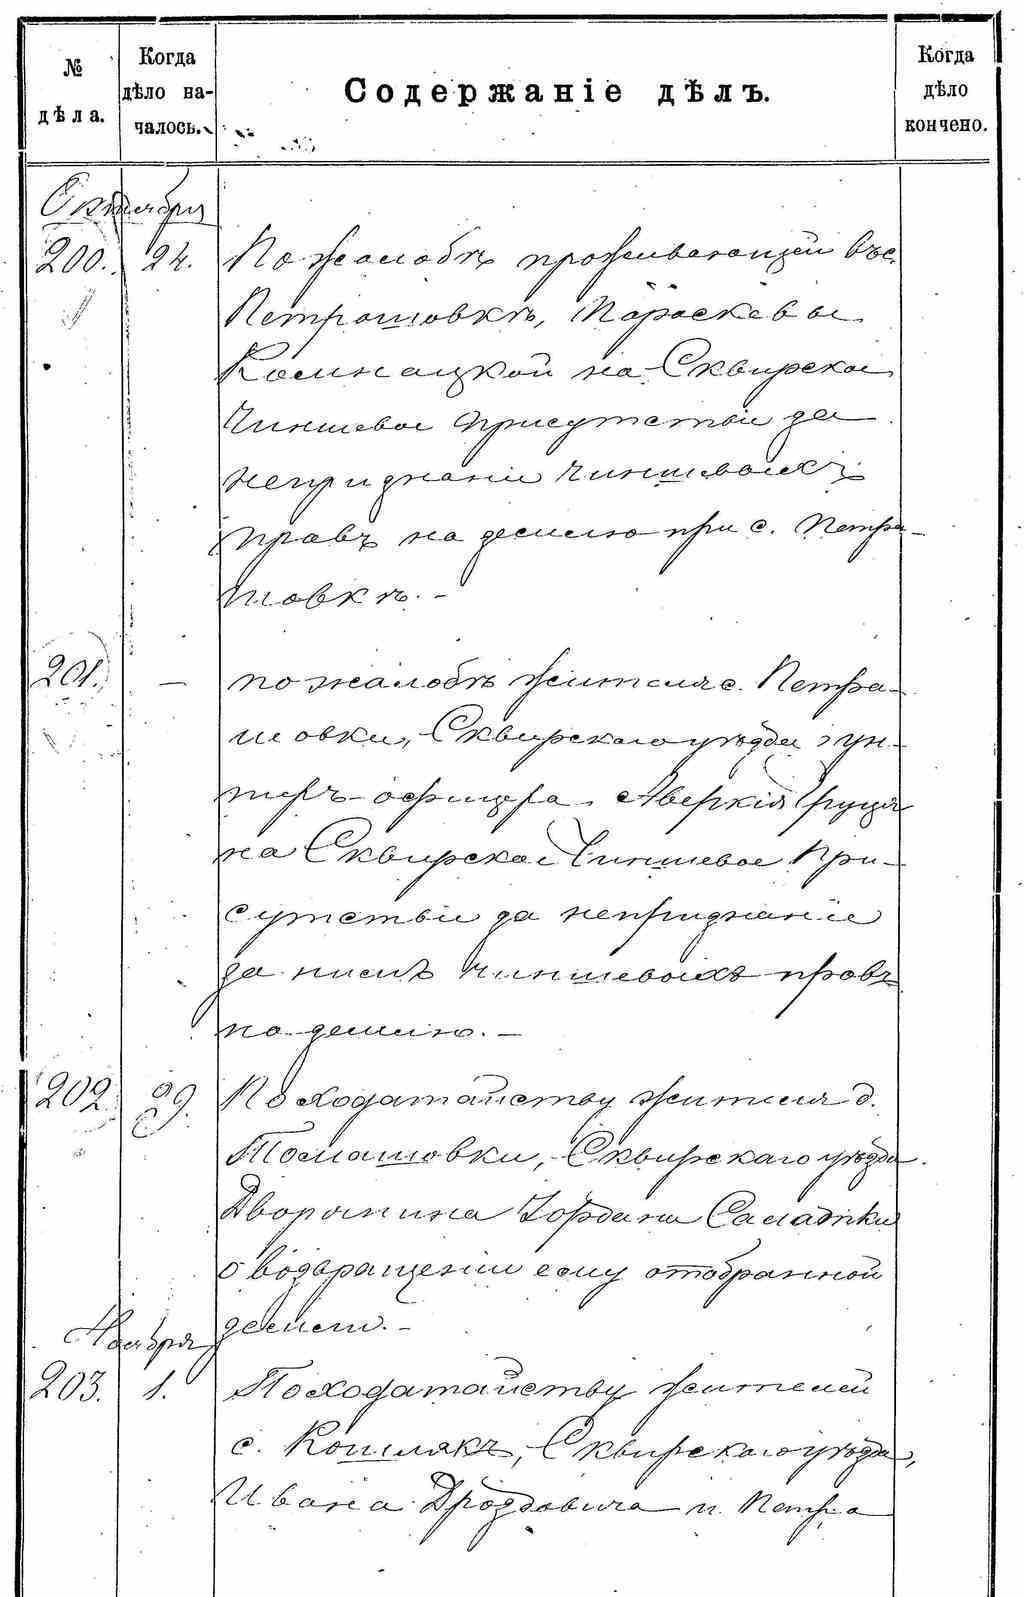 № дѣла.
Когда дѣло на-
чалось.
Содержаніе дѣлъ.
Когда дѣло кончено.
Октября
200. 24. По жалобѣ проживающей въ с.
Петрашовкѣ, Параскевы
на Сквирское
Чиншевое Присутствіе за
непризнаніе чиншевыхъ
правъ на землю при с. Петра-
шовкѣ. –
201. — по жалобѣ жителя с. Петра-
шовки, Сквирскаго уѣзда, ун-
теръ-офицера Аверкія
на Сквирское Чиншевое При-
сутствіе за непризнаніе
за нимъ чиншевыхъ правъ
на землю. –
202 29. По ходатайству жителя д.
Томашовки, Сквирскаго уѣзда
Дворянина Іордана
о возвращеніи ему отобранной
земли. –
Ноября
203. 1. По ходатайству жителей
с. Кошлякъ, Сквирскаго уѣзда,
Ивана Дроздовича и Петра